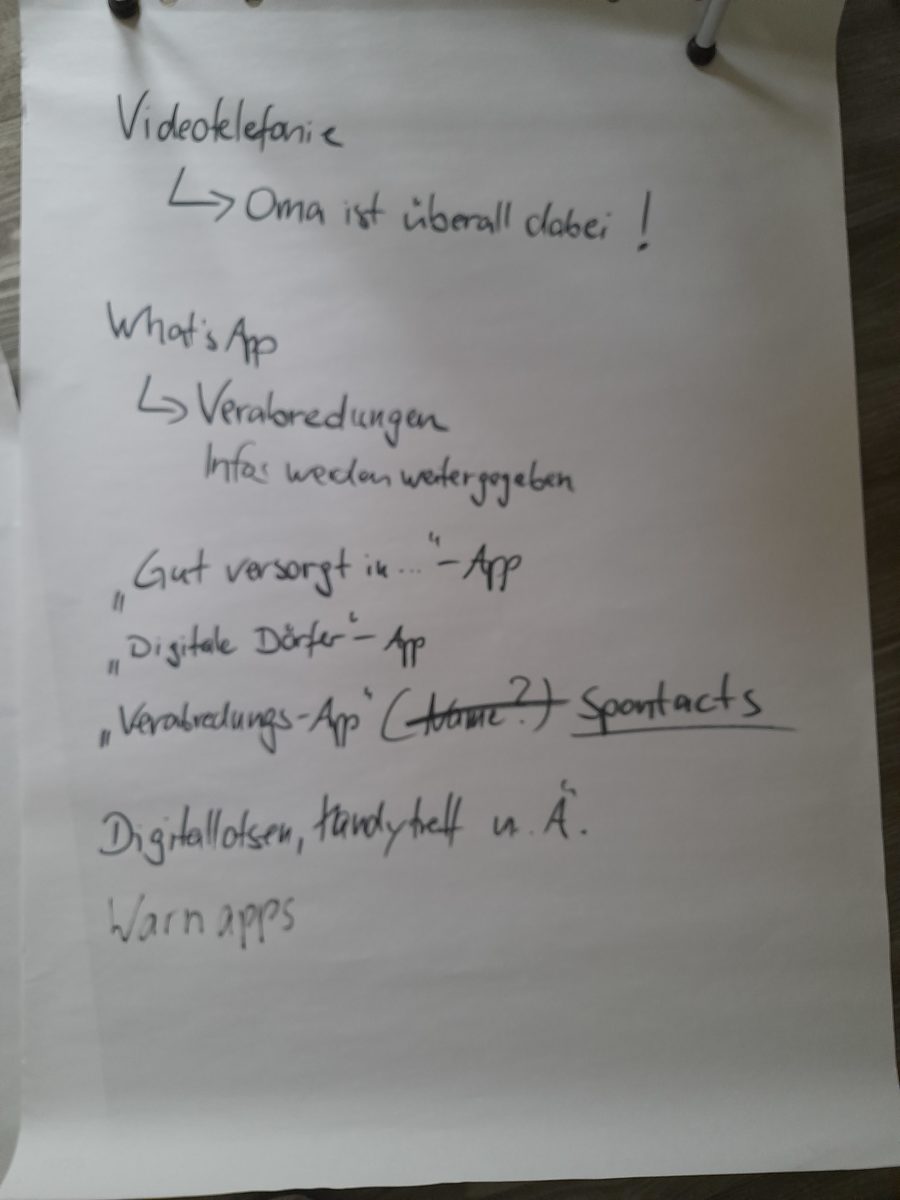 Videotelefonie
↳ Oma ist überall dabei !
What's App
↳ Verabredungen
Infos werden weitergegeben
„Gut versorgt in..."-App
„Digitale Dörfer"-App
„Verabredungs-App" (Name?) Spontacts
Digitallotsen, Handytreff u. Ä.
Warnapps